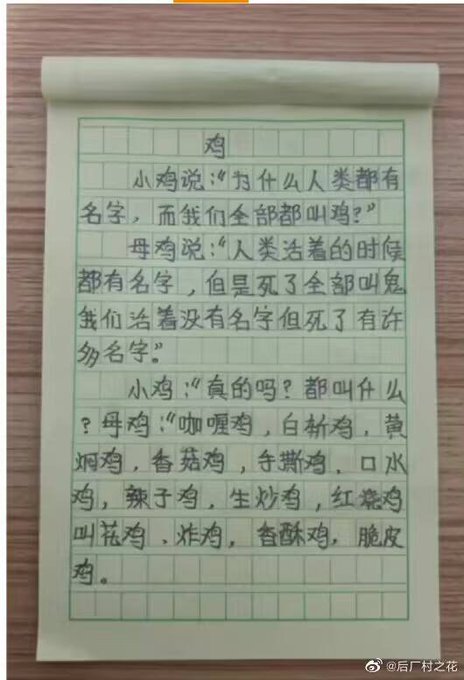 鸡
小鸡说:“为什么人类都有
名字，而我们全部都叫鸡?”
母鸡说:“人类活着的时候
都有名字，但是死了全部叫鬼
我们活着没有名字但死了有许
多名字。”
小鸡:“真的吗?都叫什么
?母鸡:“咖喱鸡，白斩鸡，黄
焖鸡，香菇鸡，手撕鸡，口水
鸡，辣子鸡，生炒鸡，红烧鸡
叫花鸡、炸鸡，香酥鸡，脆皮
鸡。
@后厂村之花